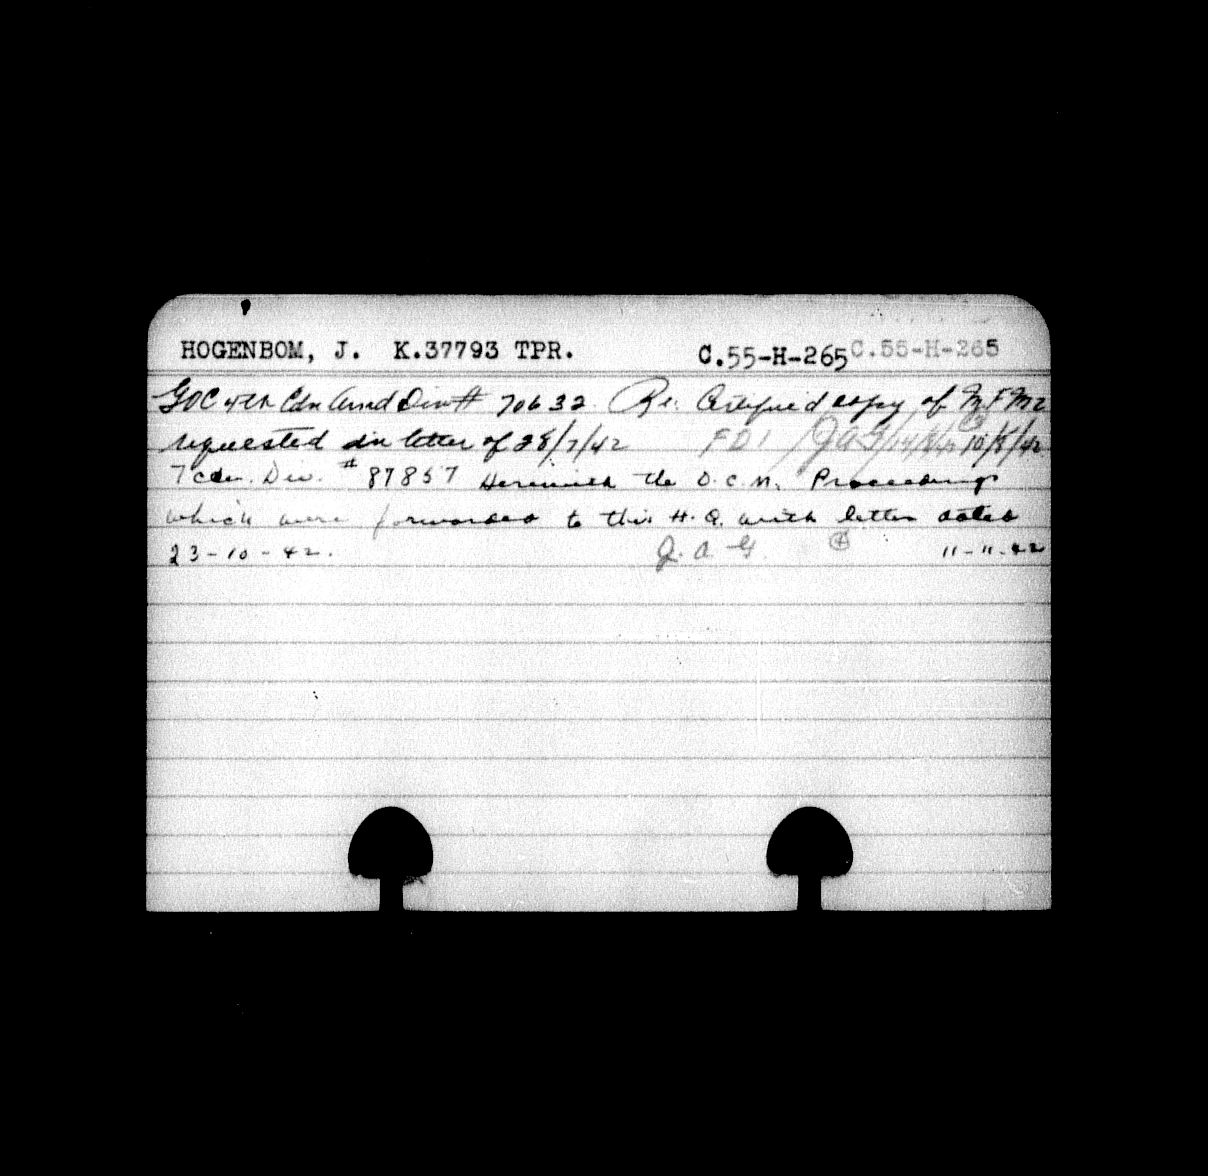 HOGENBOM, J. K.37793 TPR. C.55-H-265 C.55-H-265
GOC 4th Cdn Armd Div # 70632 Re: Certified copy of MFM2
requested in letter of 28/7/42 FD1 JAG 10/8/42
7 cdn. Div. # 87857 Herewith the D.C.M. Proceedings
which were forwarded to this H.Q. with letter dated
23-10-42. J.A.G. 11-11-42